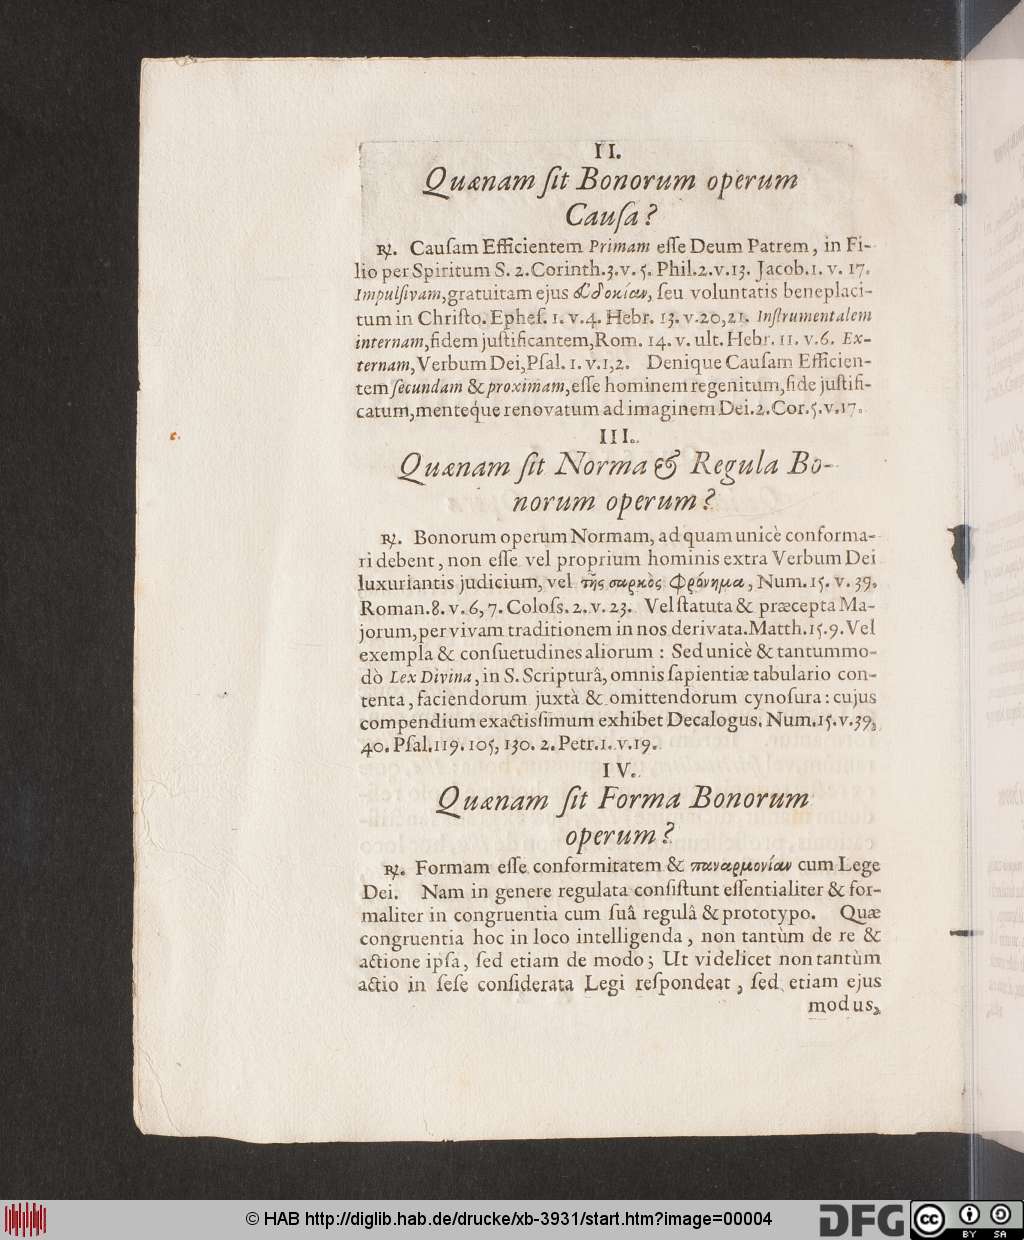 II.
Quænam ſit Bonorum operum
Cauſa?
℞. Cauſam Efficientem Primam eſſe Deum Patrem, in Fi-
lio per Spiritum S. 2.Corinth.3.v.5. Phil.2.v.13. Jacob.1.v. 17.
Impulſivam, gratuitam ejus ἐυδοκίαν, ſeu voluntatis beneplaci-
tum in Chriſto. Epheſ. 1. v.4. Hebr. 13. v.20,21. Inſtrumentalem
internam, fidem juſtificantem, Rom. 14. v. ult. Hebr. 11. v.6. Ex-
ternam, Verbum Dei, Pſal. 1. v.1,2. Denique Cauſam Efficien-
tem ſecundam & proximam, eſſe hominem regenitum, fide juſtifi-
catum, menteq́ue renovatum ad imaginem Dei. 2.Cor.5.v.17.
III.
Quænam ſit Norma & Regula Bo-
norum operum?
℞. Bonorum operum Normam, ad quam unicè conforma-
ri debent, non eſſe vel proprium hominis extra Verbum Dei
luxuriantis judicium, vel τῆς σαρκὸς φρόνημα, Num.15. v. 39.
Roman.8. v. 6, 7. Coloſs. 2. v. 23. Vel ſtatuta & præcepta Ma-
jorum, per vivam traditionem in nos derivata. Matth.15.9. Vel
exempla & conſuetudines aliorum : Sed unicè & tantummo-
dò Lex Divina, in S. Scripturâ, omnis ſapientiæ tabulario con-
tenta, faciendorum juxtà & omittendorum cynoſura: cujus
compendium exactisſimum exhibet Decalogus. Num.15.v.39,
40. Pſal.119. 105, 130. 2. Petr.1. v.19.
IV.
Quænam ſit Forma Bonorum
operum?
℞. Formam eſſe conformitatem & παναρμονίαν cum Lege
Dei. Nam in genere regulata conſiſtunt eſſentialiter & for-
maliter in congruentia cum ſuâ regulâ & prototypo. Quæ
congruentia hoc in loco intelligenda, non tantùm de re &
actione ipſa, ſed etiam de modo; Ut videlicet non tantùm
actio in ſeſe conſiderata Legi reſpondeat, ſed etiam ejus
modus,
© HAB http://diglib.hab.de/drucke/xb-3931/start.htm?image=00004
DFG
cc
BY SA